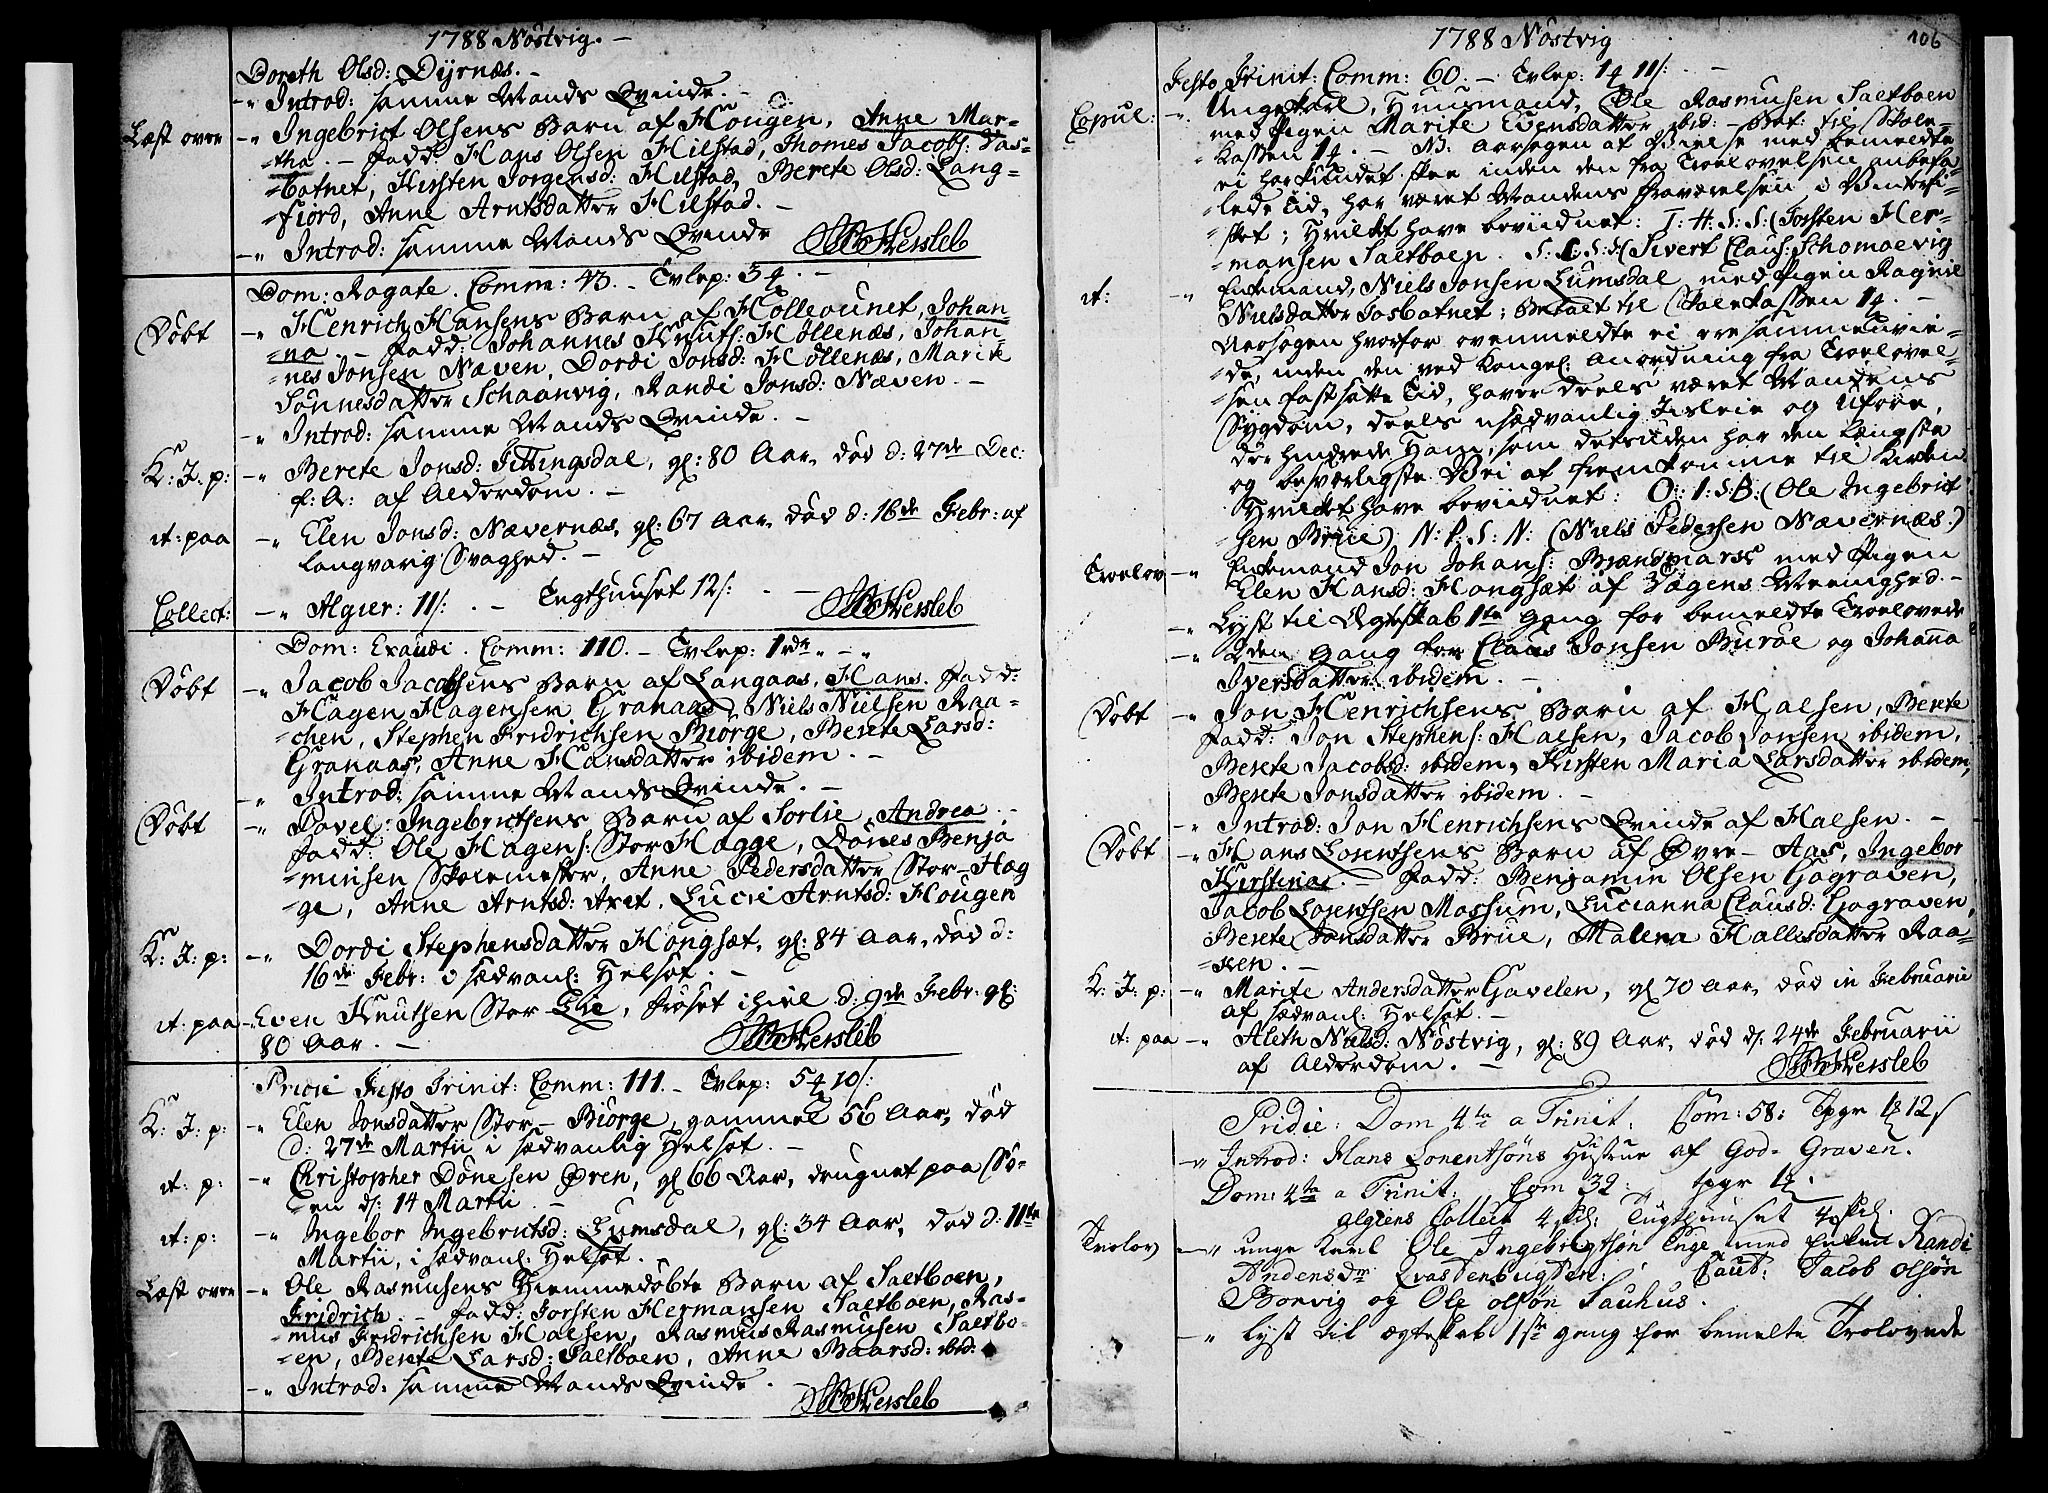 1788 Nöstvig. -
Doreth Olsd: Dyrnæs. -
-„ Introd: samme Mands Qvinde. -
Læst over -„ Ingebrict Olsens Barn af Hougen, Anne Mar-
=tha. - Fadd: Hans Olsen Hilstad, Thomes Jacobs: Vas-
=botnet, Kirsten Jorgensd: Hilstad, Berete Olsd: Lang-
=fiord, Anne Arntsdatter Hilstad. -
-„ Introd: samme Mands Qvinde Hersleb
Dom: Rogate. Comm: 43. - Tvlep: 3
Döbt -„ Henrich Hansens Barn af Hollevunet, Johan-
=na. - Fadd: Johannes Knuts: Höllenæs, Johan-
=nes Jonsen Næven, Dordi Jonsd: Höllenæs, Marite
Sönnesdatter Schaanvig, Randi Jonsd: Næven. -
-„ Introd: samme Mands Qvinde. -
K: J: p: -„ Berete Jonsd: Fittingsdal, gl: 80 Aar, död d: 27de Dec:
f: A: af Alderdom. -
it: paa -„ Elen Jonsd: Nævernæs, gl: 67 Aar, död d: 16de Febr: af
langvarig Svaghed. -
Collect: -„ Algier: 11/: - Tugthuuset 12/: - Hersleb
Dom: Exaudi. Comm: 110. - Tvlep: 1rdr „ - „
Döbt -„ Jacob Jacobsens Barn af Langaas, Hans. Fadd:
Hagen Hagensen Granaas, Niels Nielsen Raa-
=chen, Stephen Fridrichsen Biörge, Berete Larsd:
Granaas, Anne Hansdatter ibidem. -
-„ Introd: samme Mands Qvinde. -
Döbt -„ Povel Ingebrictsens Barn af Sorlie, Andrea. -
Fadd: Ole Hagens: Stor Hagge, Dönes Benja
=minsen Skolemester, Anne Pedersdatter Stor-Hag
=ge, Anne Arntsd: Axet, Lucie Arntsd: Hougen
K: J: p: -„ Dordi Stephensdatter Hongsæt, gl: 84 Aar, död d:
16de Febr: i sædvanl: Helsot. -
it: paa -„ Even Knutsen Stor Lie, fröset ihiel d: 9de Febr: gl:
80 Aar. - Hersleb
Pridie Festo Trinit: Comm: 111. - Tvlep: 5 10/:
K: J: p: -„ Elen Jonsdatter Stor-Biörge, gammel 56 Aar, död
d: 27de Martii i sædvanlig Helsot. -
it: p: -„ Christopher Dönesen Ören, gl 66 Aar, drugnet paa Sö-
=en d: 14 Martii. -
it: p: -„ Ingebor Ingebrictsd: Lumsdal, gl: 34 Aar, död d: 11te
Martii, i sædvanl: Helsot.
Læst over -„ Ole Rasmusens Hiemmedöbte Barn af Saltboen,
Fridrich. - Fadd: Torsten Hermansen Saltboen, Ras-
=mus Fridrichsen Halsen, Rasmus Rasmusen Saltbo-
=en, Berete Larsd: Saltboen, Anne Baarsd: ibid:
-„ Introd: samme Mands Qvinde. Hersleb
1788 Nöstvig 106
Festo Trinit: Comm: 60. - Tvlep: 1 11/: -
Copul: -„ Ungekarl, Huusmand, Ole Rasmusen Saltboen
med Pigen Marite Evensdatter ibid: - Bet: til Skole-
Kassen 1. - NB: Aarsagen at Vielse med bemeldte
ei har kundet skee inden den fra Troelovelsen anbefa
=lede Tid, har været Mandens fraværelsen i Vinterfi-
=sket; Hvilket have beviidnet: T. H. S. S. (Torsten Her-
=mansen Saltboen. S. C. S. S. (Sivert Claus: Schomoevig
it: -„ Enkemand, Niels Jonsen Lumsdal med Pigen Ragnil
Nielsdatter Vasbotnet; Betalt til Skolekassen 1. -
Aarsagen hvorfor ovenmeldte ei ere sammenvie-
=de, inden den ved Kongel: Anordning fra Troelovel-
=sen fastsatte Tid, haver deels været Mandens
Sygdom, deels usædvanlig Iisleie og Uföre,
der hindrede Ham, som desuden har den længste
og besværligste Vei at fremkomme til Kirken
Hvilket have beviidnet: O: I: S: B: (Ole Ingebrict
=sen Brue) N: P: S: N: (Niels Pedersen Nævernæs.)
Troelov -„ Enkemand Jon Johans: Brandmarsk med Pigen
Elen Hansd: Hongsæt af Vogens Meenighed. -
-„ Lyst til Ægteskab 1te Gang for bemeldte Troelovede
-„ 2den Gang for Claus Jonsen Buröe og Johanna
Iversdatter ibidem. -
Döbt -„ Jon Henrichsens Barn af Halsen, Berete
Fadd: Jon Stephens: Halsen, Jacob Jonsen ibidem,
Berete Jacobsd: ibidem, Kirsten Maria Larsdatter ibidem,
Berete Jonsdatter ibidem. -
-„ Introd: Jon Henrichsens Qvinde af Halsen. -
Döbt -„ Hans Lorentsens Barn af Övre-Aas, Ingebor
Kirstina. - Fadd: Benjamin Olsen Gograven,
Jacob Lorentsen Mossum, Lucianna Clausd: Gograven,
Berete Jonsdatter Brue, Malena Hallesdatter Raa-
=ken. -
K: J: p: -„ Marite Andersdatter Gavelen, gl 70 Aar, död in Februarii
af sædvanl: Helsot. -
it: paa -„ Aleth Nielsd: Nöstvig, gl: 89 Aar, död d: 24de Februarii
af Alderdom. - Hersleb
Pridie: Dom 4te a Trinit: Com: 58: Tpgr 1 12/
-„ Introd: Hans Lorentsöns Hustrue af God-Graven.
Dom: 4te a Trinit: Com 39: tpgr 1.
algiens Collect 4 skl: Tugthuuset 4 skil.
Trolov -„ unge Karl Ole Ingebrigtsön Enge med Enken Randi
Andersdr Caut: Jacob olsön
Borvig og Ole olsön Sauhus.
-„ lyst til ægteskab 1ste gang for bemelte Trolovede